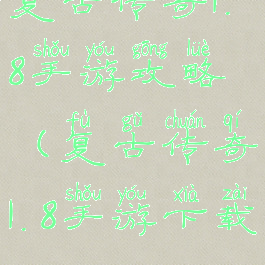 复古传奇1.
shǒu yóu gōng lüè
8手游攻略
fù gǔ chuán qí
(复古传奇
shǒu yóu xià zài
1.8手游下载